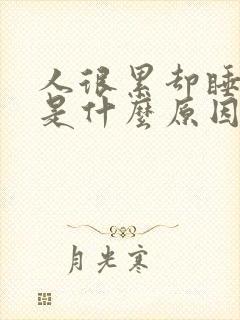 人很累却睡
是什麼原因
月光寒